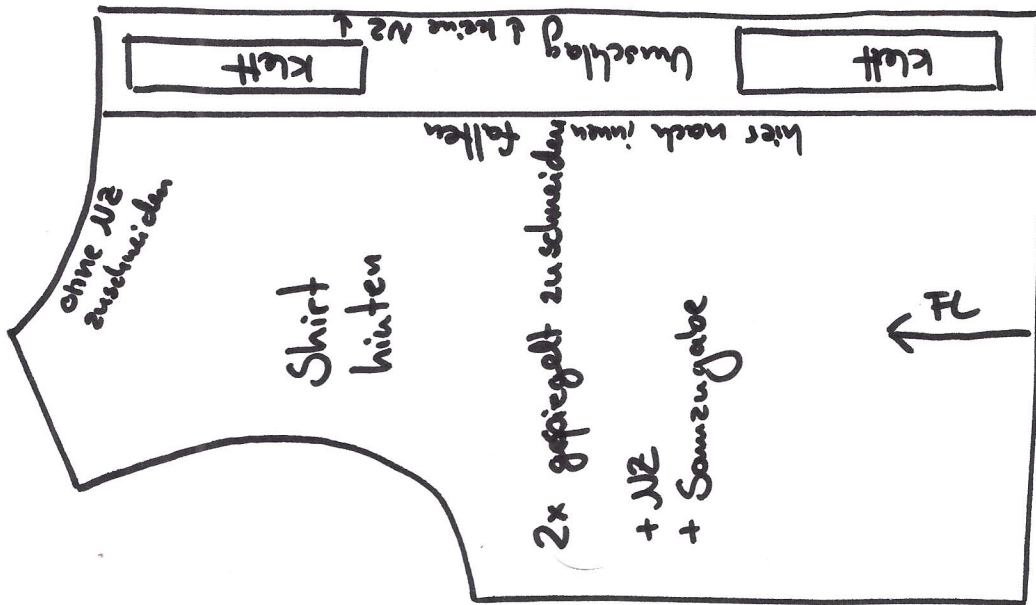 Klett
Umschlag & keine NZ
Klett
hier nach innen falten
ohne NZ
zuschneiden
Shirt
hinten
2x gespiegelt zuschneiden
+ NZ
+ Saumzugabe
FL